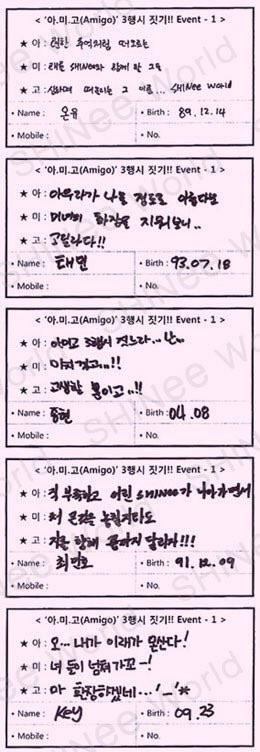 < '아.미.고(Amigo)' 3행시 짓기!! Event - 1 >
★ 아 : 련한 추억처럼 떠오르는
★ 미 : 래를 SHINee와 함께 할 그들
★ 고 : 떠오르는 그 이름... SHINee World
• Name : 온유 • Birth : 89.12.14
• Mobile : • No.
< '아.미.고(Amigo)' 3행시 짓기!! Event - 1 >
★ 아 : 아우라가 나올 정도로 아름다운
★ 미 : 미녀의 화장을 지워보니..
★ 고 : 고릴라다!!
• Name : 태민 • Birth : 93.07.18
• Mobile : • No.
< '아.미.고(Amigo)' 3행시 짓기!! Event - 1 >
★ 아 : 아미고 3행시 짓느라... 난..
★ 미 : 미치겠고..!!
★ 고 : 고생할 뿐이고..!!
• Name : 종현 • Birth : 04.08
• Mobile : • No.
< '아.미.고(Amigo)' 3행시 짓기!! Event - 1 >
★ 아 : 직 부족하고 어린 SHINee가 나아가면서
★ 미 : 처 본길을 놓칠지라도
★ 고 : 지를 향해 끝까지 달리자!!!
• Name : 최민호 • Birth : 91.12.09
• Mobile : • No.
< '아.미.고(Amigo)' 3행시 짓기!! Event - 1 >
★ 아 : 오... 내가 이래가 몬산다!
★ 미 : 너 돋이 넘쳐가꼬~!
★ 고 : 마 환장하겠네...'_'*
• Name : Key • Birth : 09.23
• Mobile : • No.
SHINee World